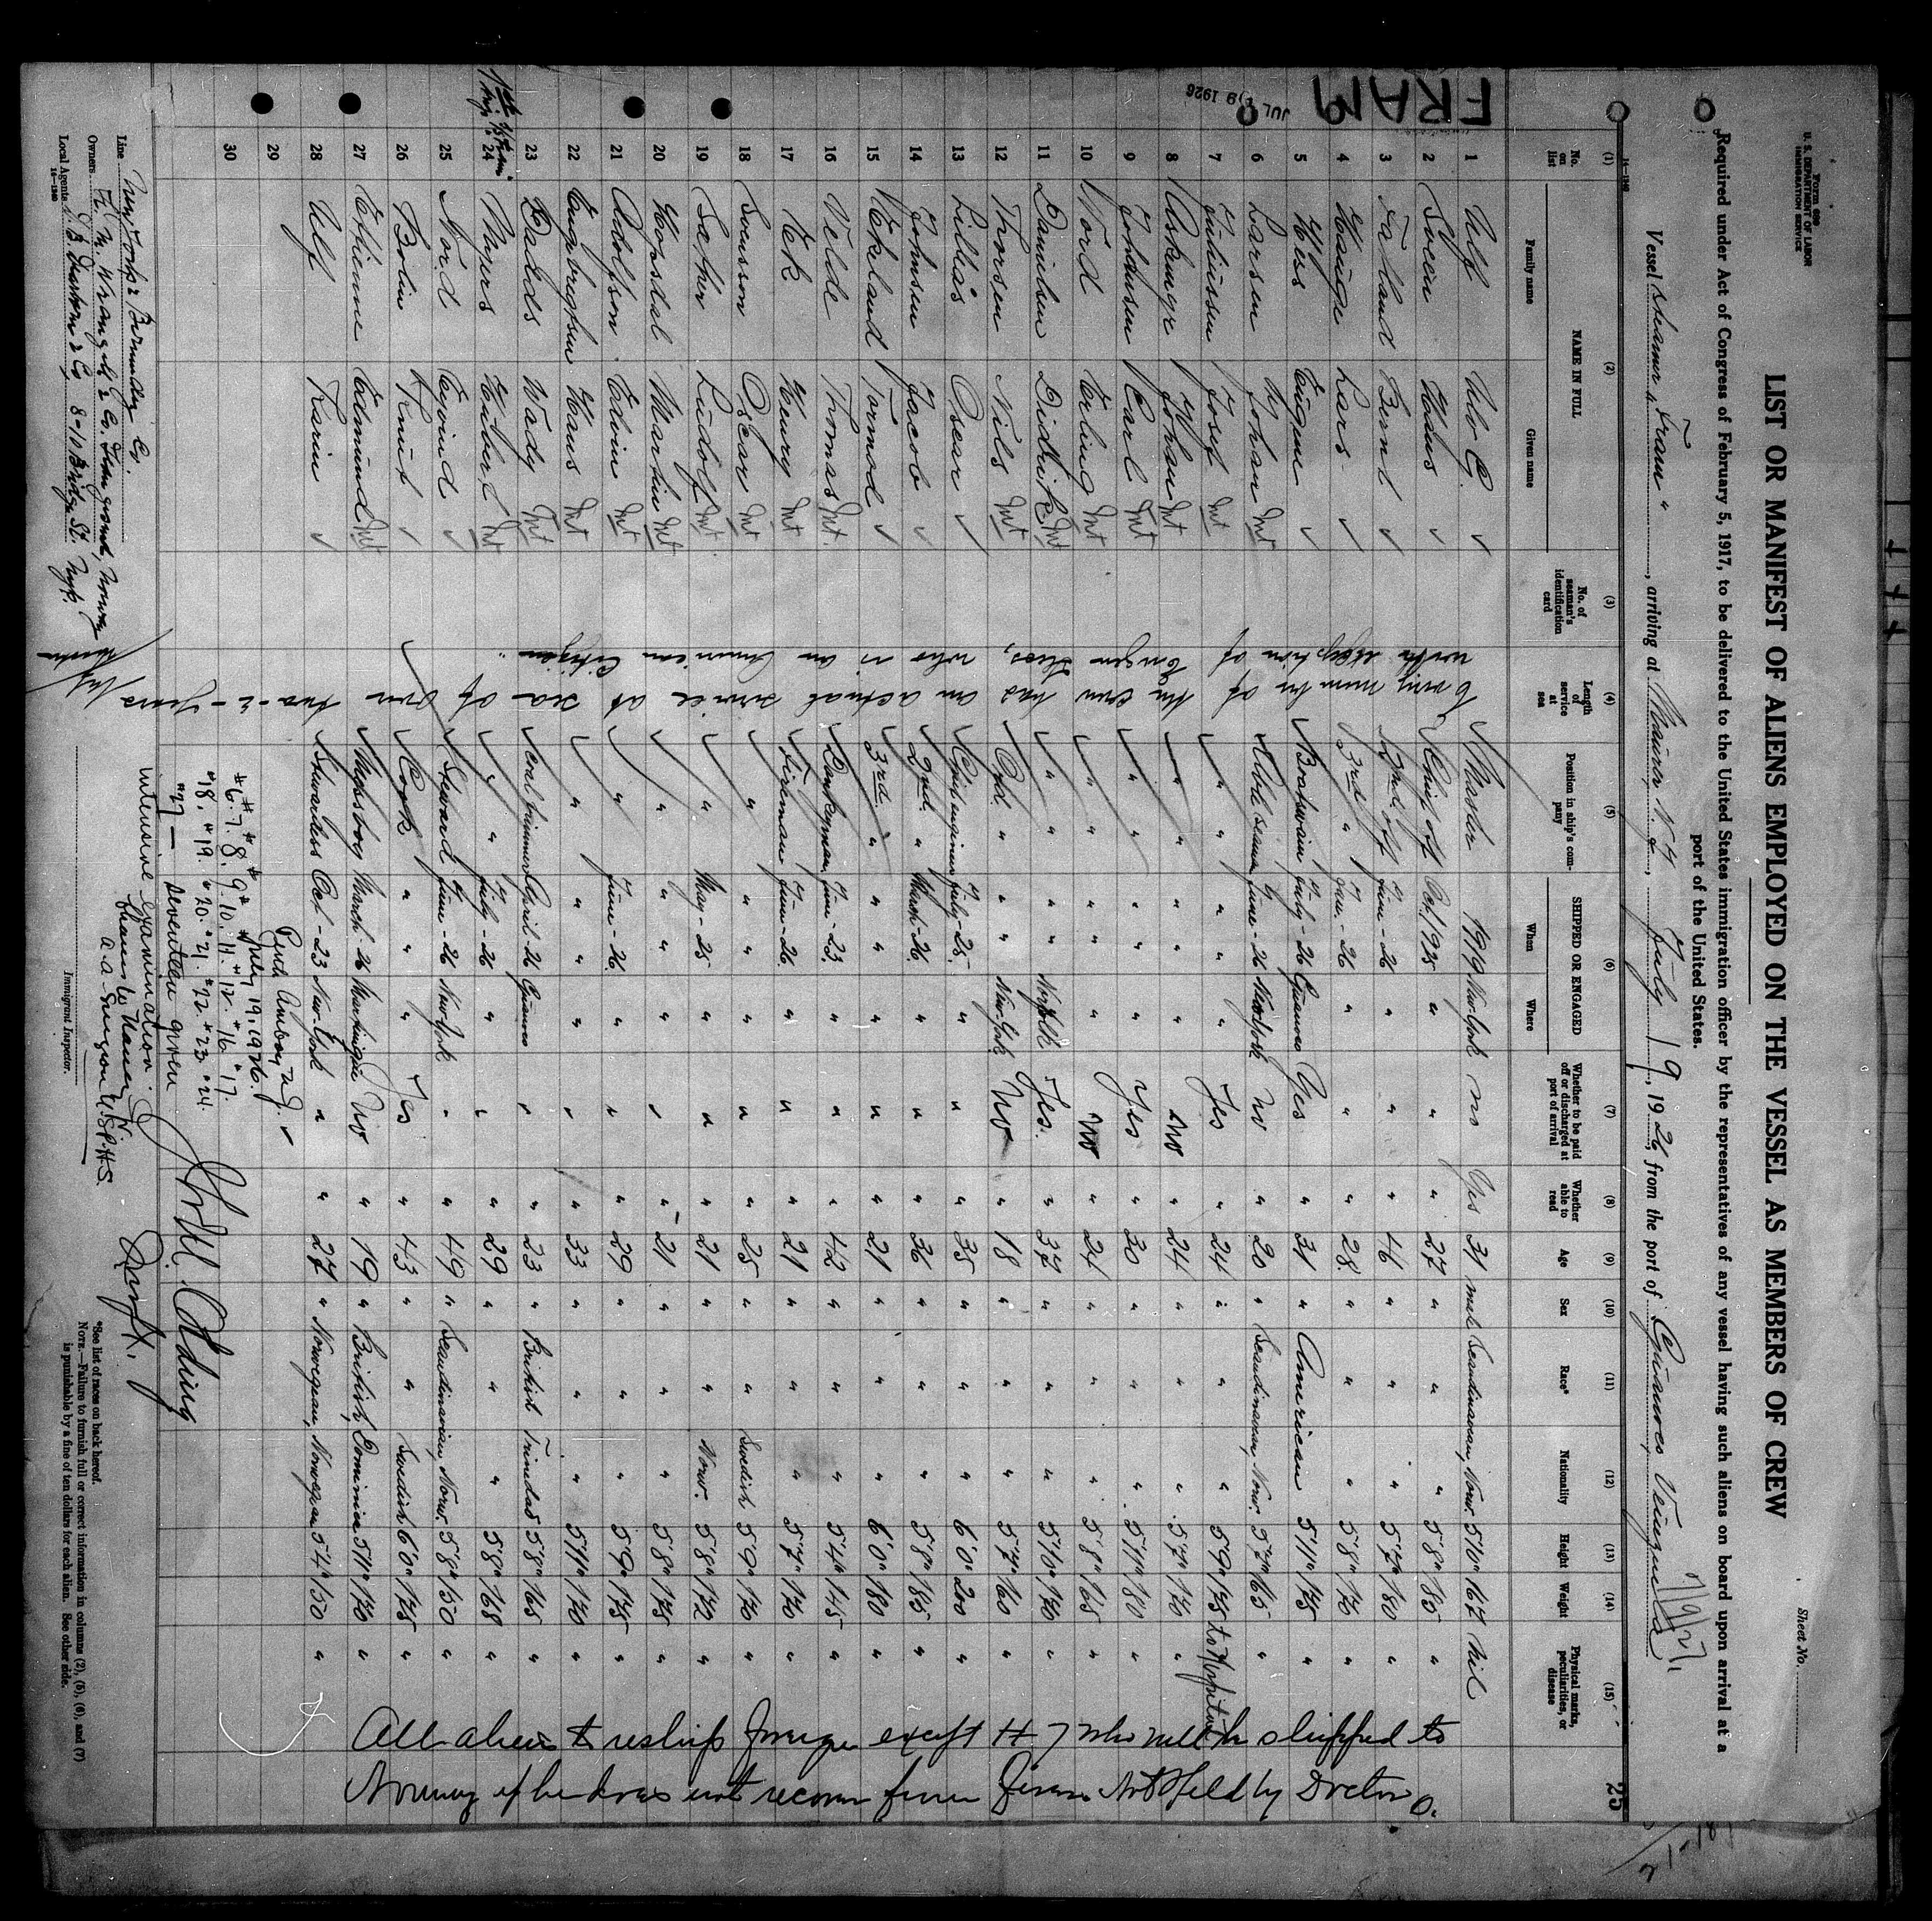 Form 689
U. S. DEPARTMENT OF LABOR
IMMIGRATION SERVICE
Sheet No.
25
LIST OR MANIFEST OF ALIENS EMPLOYED ON THE VESSEL AS MEMBERS OF CREW
Required under Act of Congress of February 5, 1917, to be delivered to the United States immigration officer by the representatives of any vessel having such aliens on board upon arrival at a
port of the United States.
Vessel steamer "Fram", arriving at N.J., July 19, 1926, from the port of
FRAM
JUL 19 1926
(1) (2) (3) (4) (5) (6) (7) (8) (9) (10) (11) (12) (13) (14) (15)
No. on list NAME IN FULL Family name Given name No. of seaman's identification card Length of service at sea Position in ship's company SHIPPED OR ENGAGED When Where Whether to be paid off or discharged at port of arrival Whether able to read Age Sex Race* Nationality Height Weight Physical marks, peculiarities, or disease
1 Ulf Ulo C. Master 1919 New-York no Yes 31 male Scandinavian Norw. 5'10" 167 Nil
2 Sveen Hans Chief off Oct/1925 " " " 27 " " " 5'8" 185 "
3 Faland Bernt 2nd off June-26 " " " 46 " " " 5'7" 180 "
4 Hauge Lars 3rd " Jan.-26 " " " 28 " " " 5'8" 170 "
5 Hes Eugene Boatswain July-26 Guanoco Yes " 31 " American 5'11" 175 "
6 Larsen Johan Int Able seaman June-26 New York no " 20 " Scandinavian Norw. 5'7" 165 "
7 Juliussen Josef Int " " " Yes " 24 " " " 5'9" 175 to Hospital
8 Johan Int " " " No " 24 " " " 5'7" 170 "
9 Johansen Carl Int " " " Yes " 30 " " " 5'11" 180 "
10 Nord Erling Int " " " No " 24 " " " 5'8" 165 "
11 Danielsen Didrik Int " " Norfolk Yes. " 37 " " " 5'10" 170 "
12 Thorsen Nils Int Ord. " " New-York No " 18 " " " 5'7" 160 "
13 Lillås Oscar Chief engineer July-25 " " " 35 " " " 6'0" 200 "
14 Johnsen Jacob 2nd. " March-26 " " " 36 " " " 5'8" 185 "
15 Ekeland Tormod 3rd. " " " " " 21 " " " 6'0" 180 "
16 Velde Thomas Int. Donkeyman June-23 " " " 42 " " " 5'4" 145 "
17 Ek Henry Int Fireman June-26 " " " 21 " " " 5'7" 170 "
18 Svensson Oscar Int " " " " " 25 " " Swedish 5'9" 170 "
19 Sæther Ludolf Int " May-25 " " " 21 " " Norw. 5'8" 172 "
20 Hopsdal Martin Int " " " " " 21 " " " 5'8" 175 "
21 Adolfson Edvin Int " June-26 " " " 29 " " " 5'9" 175 "
22 Engbregtsen Hans Int " " " " " 33 " " " 5'11" 170 "
23 Wady Int Coal trimmer April-26 Guanoco " " 23 " British Trinidad 5'8" 165 "
24 Myers Int " July-26 " " " 29 " " " 5'8" 168 "
25 Nord Eyvind Steward June-26 New-York " " 49 " Scandinavian Norw. 5'8" 150 "
26 Bolin Knut Cook " " Yes " 43 " " Swedish 6'0" 175 "
27 Ethienne Edmund Int Messboy March-26 Martinique No " 19 " British Dominica 5'11" 170 "
28 Ulf Karin Stewardess Oct-23 New-York " " 27 " Norwegian Norwegian 5'4" 150 "
29
30
Every member of the crew has an actual service at sea of over two-2-years
with exception of Eugen Hes, who is an American Citizen
All aliens to reship foreign except # 7 who will be shipped to
Norway if he does not recover from Held by Doctor
Perth Amboy N.J.
July 19, 1926.
#6. #7. #8. #9. #10. #11. #12. #16. #17.
#18. #19. #20. #21. #22. #23. #24.
#27 — seventeen given
intensive examination.
U.S.P.H.S.
Line New York & Bermudez Co.
Owners Haugesund, Norway
Local Agents & Co. 8-10 Bridge St. N.Y.
14—1240
Immigrant Inspector.
*See list of races on back hereof.
NOTE.—Failure to furnish full or correct information in columns (2), (5), (6), and (7)
is punishable by a fine of ten dollars for each alien. See other side.